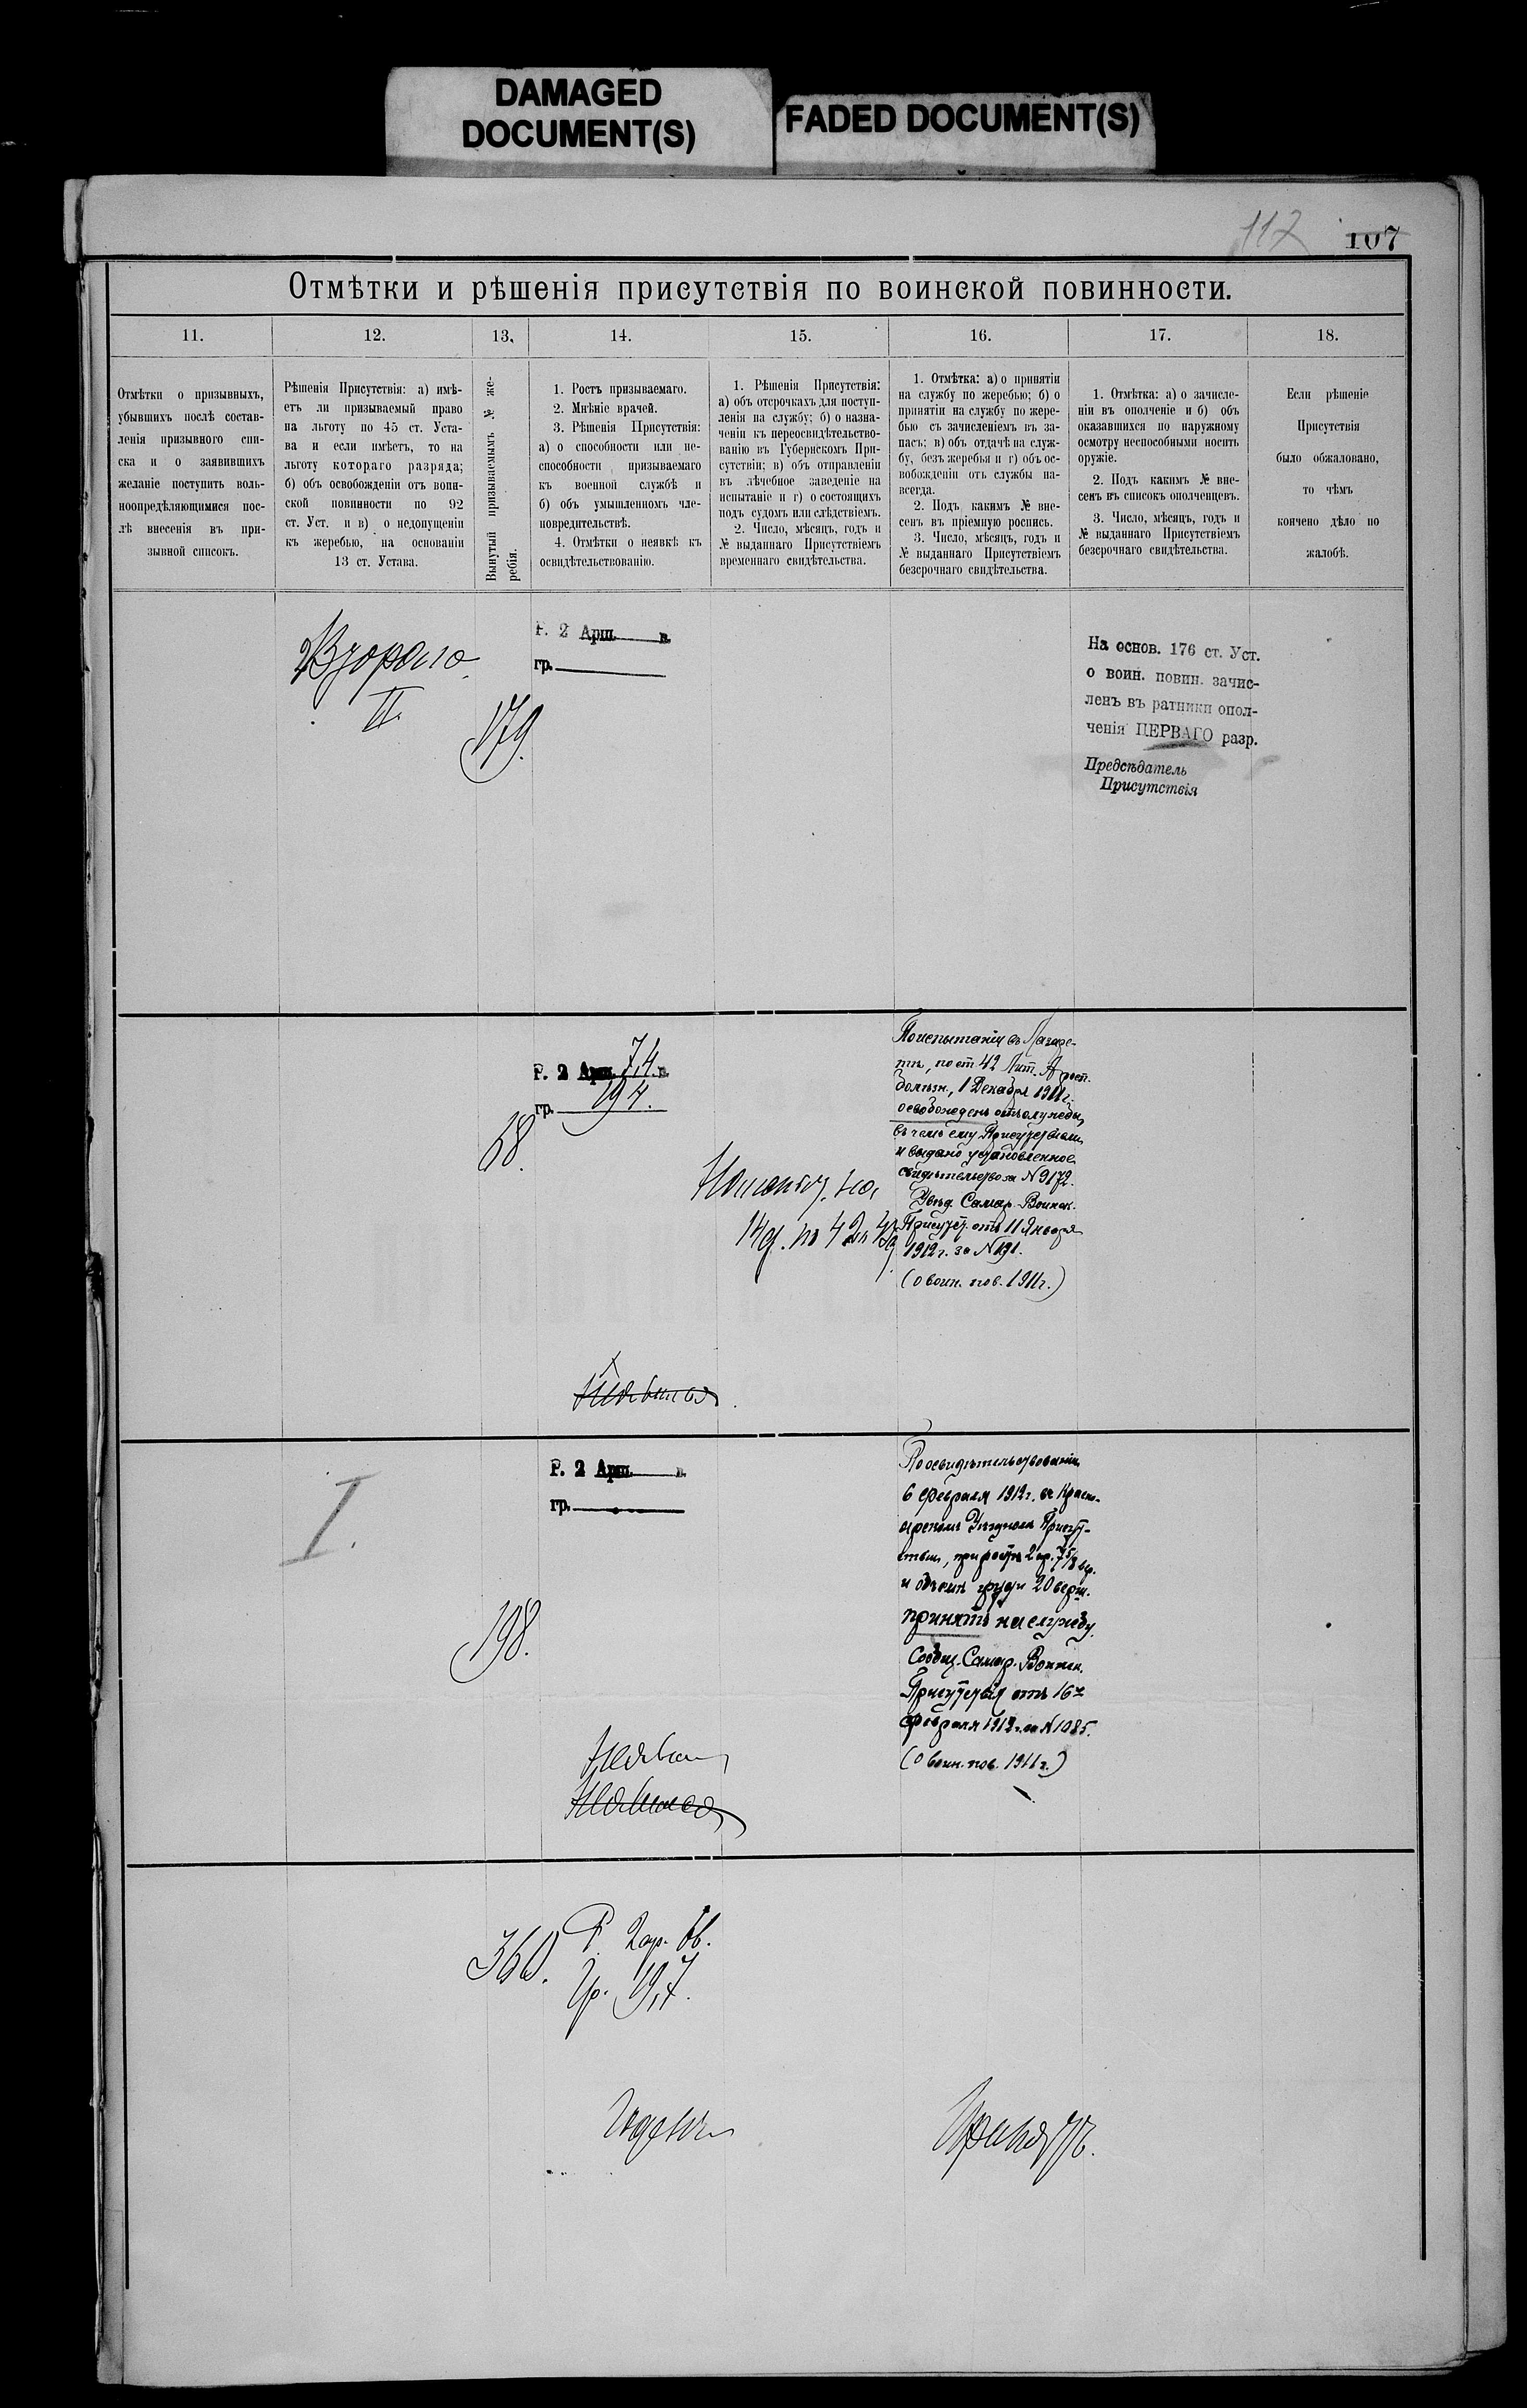 DAMAGED
DOCUMENT(S)
FADED DOCUMENT(S)
117
107
Отмѣтки и рѣшенія присутствія по воинской повинности.
11.
12.
13.
14.
15.
16.
17.
18.
Отмѣтки о призывныхъ,
убывшихъ послѣ состав-
ленія призывного спи-
ска и о заявившихъ
желаніе поступить воль-
ноопредѣляющимися пос-
лѣ внесенія въ при-
зывной списокъ.
Рѣшенія Присутствія: а) имѣ-
етъ ли призываемый право
на льготу по 45 ст. Уста-
ва и если имѣетъ, то на
льготу котораго разряда;
б) объ освобожденіи отъ воин-
ской повинности по 92
ст. Уст. и в) о недопущеніи
къ жеребью, на основаніи
13 ст. Устава.
Вынутый призываемымъ № же-
ребія.
1. Ростъ призываемаго.
2. Мнѣніе врачей.
3. Рѣшенія Присутствія:
а) о способности или не-
способности призываемаго
къ военной службѣ и
б) объ умышленномъ чле-
новредительствѣ.
4. Отмѣтки о неявкѣ къ
освидѣтельствованію.
1. Рѣшенія Присутствія:
а) объ отсрочкахъ для поступ-
ленія на службу; б) о назна-
ченіи къ переосвидѣтельство-
ванію въ Губернскомъ При-
сутствіи; в) объ отправленіи
въ лѣчебное заведеніе на
испытаніе и г) о состоящихъ
подъ судомъ или слѣдствіемъ.
2. Число, мѣсяцъ, годъ и
№ выданнаго Присутствіемъ
временнаго свидѣтельства.
1. Отмѣтка: а) о принятіи
на службу по жеребью; б) о
принятіи на службу по жере-
бью съ зачисленіемъ въ за-
пасъ; в) объ отдачѣ на служ-
бу, безъ жеребья и г) объ ос-
вобожденіи отъ службы на-
всегда.
2. Подъ какимъ № вне-
сенъ въ пріемную роспись.
3. Число, мѣсяцъ, годъ и
№ выданнаго Присутствіемъ
безсрочнаго свидѣтельства.
1. Отмѣтка: а) о зачисле-
ніи въ ополченіе и б) объ
оказавшихся по наружному
осмотру неспособными носить
оружіе.
2. Подъ какимъ № вне-
сенъ въ списокъ ополченцевъ.
3. Число, мѣсяцъ, годъ и
№ выданнаго Присутствіемъ
безсрочнаго свидѣтельства.
Если рѣшеніе
Присутствія
было обжаловано,
то чѣмъ
кончено дѣло по
жалобѣ.
Второго
II.
179.
Р. 2 Арш. в.
гр.
На основ. 176 ст. Уст.
о воин. повин. зачис-
ленъ въ ратники опол-
ченія ПЕРВАГО разр.
Предсѣдатель
Присутствія
68.
Р. 2 Арш. 7,4 в.
гр. 19 4.
По испытаніи въ Лазаре-
тѣ, по ст 42 Лит. А росп.
болѣзн., 1 Декабря 1911 г.
освобожденъ отъ службы,
въ чемъ ему Присутствіемъ
и выдано установленное
свидѣтельство за № 9172.
Увѣд. Самар. Воинск.
Присутст. отъ 11 Января
1912 г. за № 191.
(о воин. пов. 1911 г.)
Неявился
I.
198.
Р. 2 Арш. в.
гр.
По освидѣтельствованіи
6 февраля 1912 г. въ Красно-
ярскомъ Уѣздномъ Присут-
ствіи, при ростѣ 2 ар. 7 5/8 вер.
и объемѣ груди 20 верш.
принятъ на службу.
Сообщ. Самар. Воинск.
Присутствія отъ 16го
февраля 1912 г. за № 1085.
(о воин. пов. 1911 г.)
Неявился
360.
Р. 2 ар. 6 в.
Гр. 19,7.
Годенъ
Принятъ.